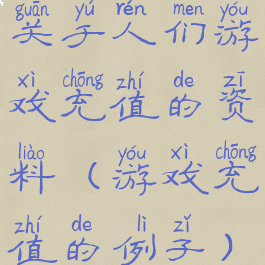 guān yú rén men yóu
关于人们游
xì chōng zhí de zī
戏充值的资
liào yóu xì chōng
料（游戏充
zhí de lì zǐ
值的例子）